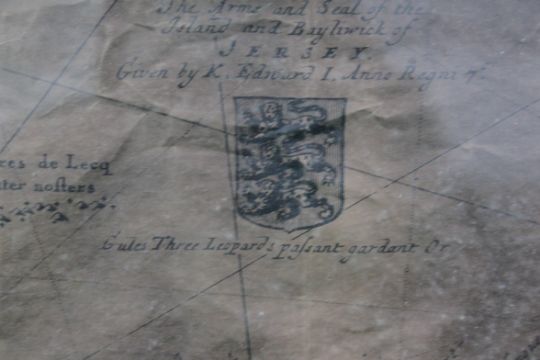 The Arms and Seal of the
Island and Bayliwick of
JERSEY.
Given by K. Edward I. Anno Regni 7.
res de Lecq
ter nosters
Gules Three Leopards passant gardant Or